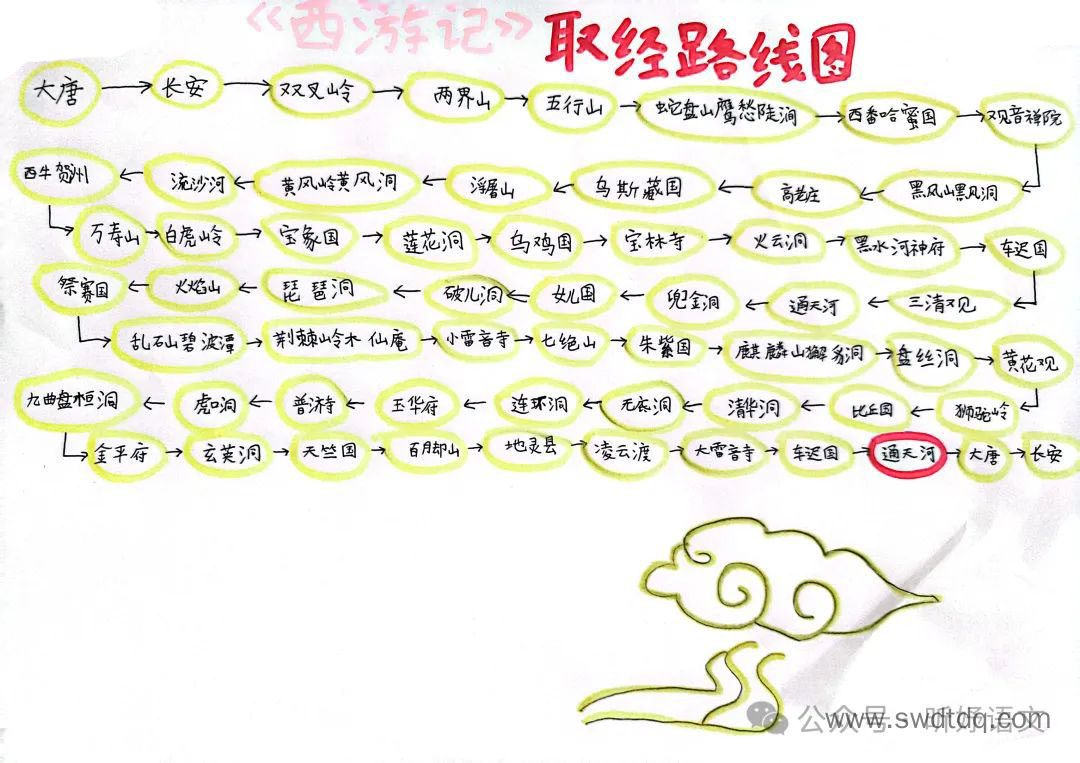 《西游记》取经路线图
大唐→长安→双叉岭→两界山→五行山→蛇盘山鹰愁陡涧→西番哈蜜国→观音禅院
西牛贺州←流沙河←黄风岭黄风洞←浮屠山←乌斯藏国←高老庄←黑风山黑风洞
万寿山→白虎岭→宝象国→莲花洞→乌鸡国→宝林寺→火云洞→黑水河神府→车迟国
祭赛国←火焰山←琵琶洞←破儿洞←女儿国←兜金洞←通天河←三清观
乱石山碧波潭→荆棘岭木仙庵→小雷音寺→七绝山→朱紫国→麒麟山獬豸洞→盘丝洞→黄花观
九曲盘桓洞←虎口洞←普济寺←玉华府←连环洞←无底洞←清华洞←比丘国←狮驼岭
金平府→玄英洞→天竺国→百脚山→地灵县→凌云渡→大雷音寺→车迟国→通天河→大唐→长安
公众号
www.swdtdq.com